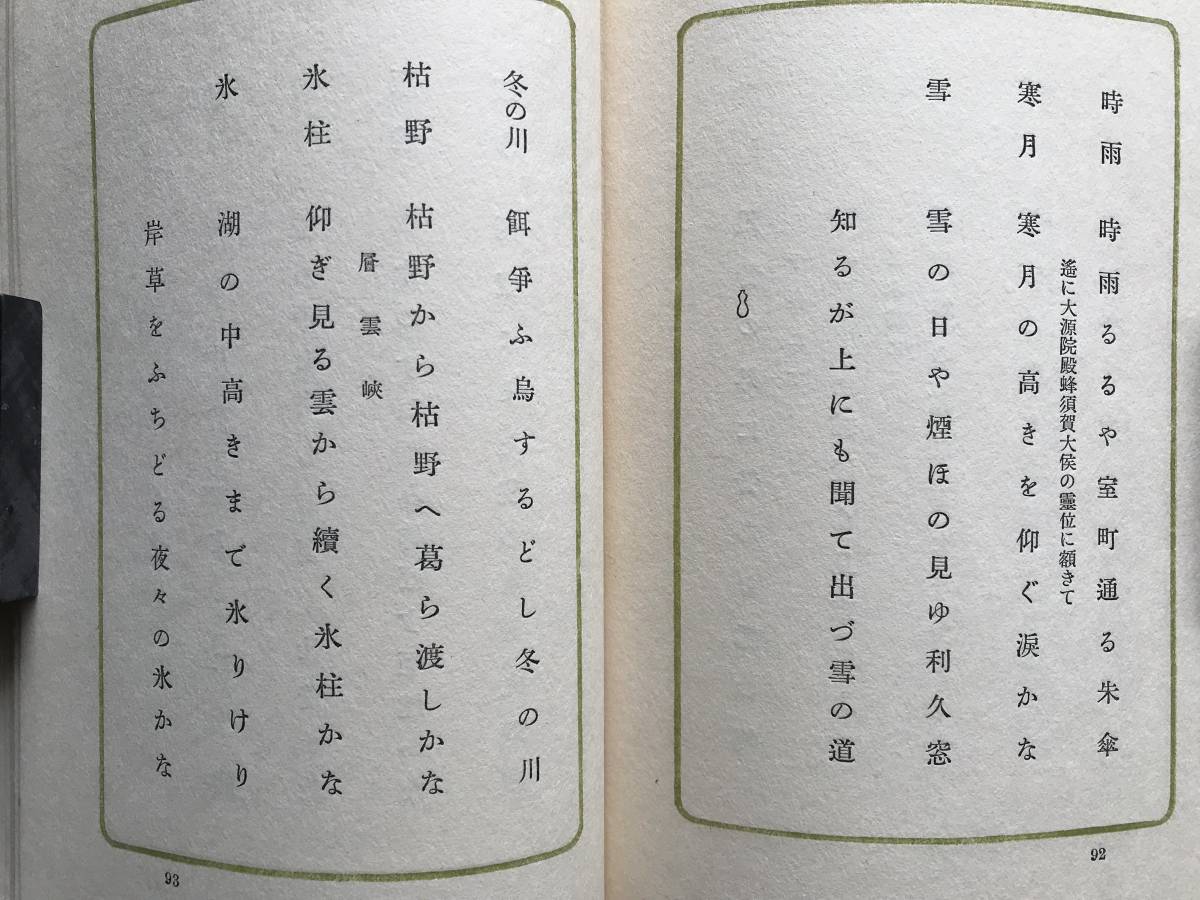 時雨　時雨るるや室町通る朱傘
遙に大源院殿蜂須賀大侯の靈位に額きて
寒月　寒月の高きを仰ぐ涙かな
雪　雪の日や煙ほの見ゆ利久窓
知るが上にも聞て出づ雪の道
92
冬の川　餌爭ふ烏するどし冬の川
枯野　枯野から枯野へ葛ら渡しかな
層雲峽
氷柱　仰ぎ見る雲から續く氷柱かな
氷　湖の中高きまで氷りけり
岸草をふちどる夜々の氷かな
93